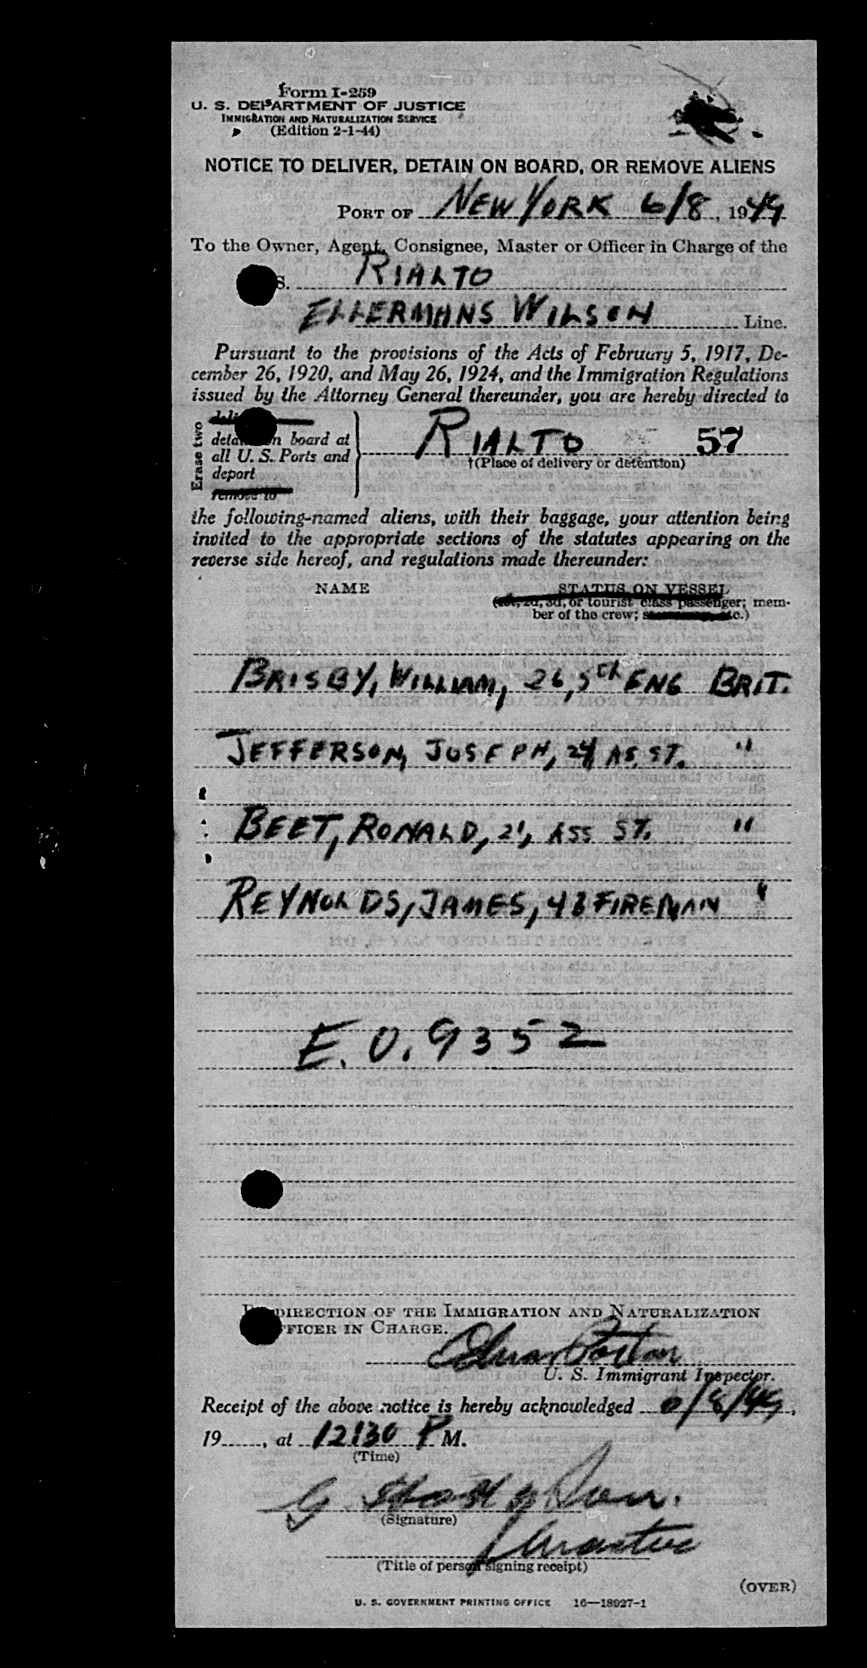 Form I-259
U. S. DEPARTMENT OF JUSTICE
IMMIGRATION AND NATURALIZATION SERVICE
(Edition 2-1-44)
NOTICE TO DELIVER, DETAIN ON BOARD, OR REMOVE ALIENS
PORT OF NEW YORK 6/8, 1949
To the Owner, Agent, Consignee, Master or Officer in Charge of the
S. RIALTO
ELLERMANS WILSON Line.
Pursuant to the provisions of the Acts of February 5, 1917, De-
cember 26, 1920, and May 26, 1924, and the Immigration Regulations
issued by the Attorney General thereunder, you are hereby directed to
Erase two
detain on board at
all U. S. Ports and
deport
remove to
RIALTO 57
†(Place of delivery or detention)
the following-named aliens, with their baggage, your attention being
invited to the appropriate sections of the statutes appearing on the
reverse side hereof, and regulations made thereunder:
NAME STATUS ON VESSEL
(1st, 2d, 3d, or tourist class passenger; mem-
ber of the crew; etc.)
BRISBY, WILLIAM, 26, 5th ENG BRIT.
JEFFERSON, JOSEPH, 24 AS. ST. "
BEET, RONALD, 21, ASS ST. "
REYNOLDS, JAMES, 43 FIREMAN "
E.O. 9352
DIRECTION OF THE IMMIGRATION AND NATURALIZATION
OFFICER IN CHARGE.
U. S. Immigrant Inspector.
Receipt of the above notice is hereby acknowledged 6/8/49,
19......, at 12:30 P M.
(Time)
(Signature)
Master
(Title of person signing receipt)
(OVER)
U. S. GOVERNMENT PRINTING OFFICE 16—18927-1